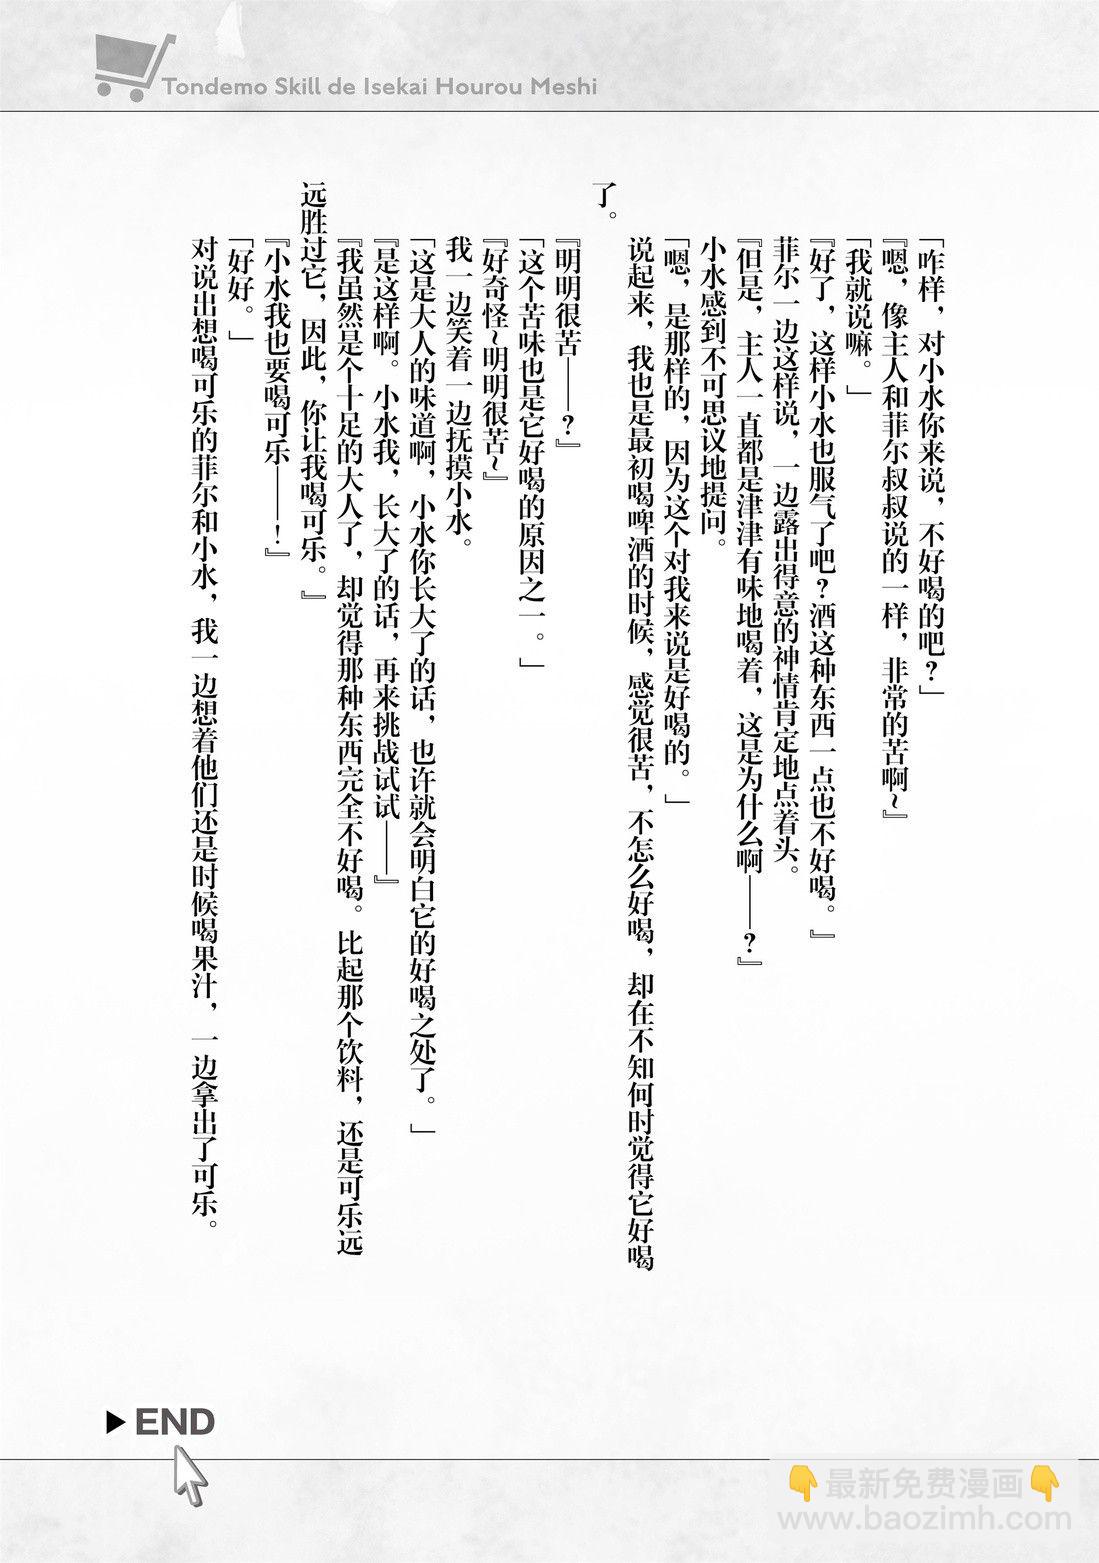 Tondemo Skill de Isekai Hourou Meshi
「咋样，对小水你来说，不好喝的吧？」
『嗯，像主人和菲尔叔叔说的一样，非常的苦啊~』
「我就说嘛。」
『好了，这样小水也服气了吧？酒这种东西一点也不好喝。』
菲尔一边这样说，一边露出得意的神情肯定地点着头。
『但是，主人一直都是津津有味地喝着，这是为什么啊——？』
小水感到不可思议地提问。
「嗯，是那样的，因为这个对我来说是好喝的。」
说起来，我也是最初喝啤酒的时候，感觉很苦，不怎么好喝，却在不知何时觉得它好喝
了。
『明明很苦——？』
「这个苦味也是它好喝的原因之一。」
『好奇怪~明明很苦~』
我一边笑着一边抚摸小水。
「这是大人的味道啊，小水你长大了的话，也许就会明白它的好喝之处了。」
『是这样啊。小水我，长大了的话，再来挑战试试——』
『我虽然是个十足的大人了，却觉得那种东西完全不好喝。比起那个饮料，还是可乐远
远胜过它，因此，你让我喝可乐。』
『小水我也要喝可乐——！』
「好好。」
对说出想喝可乐的菲尔和小水，我一边想着他们还是时候喝果汁，一边拿出了可乐。
END
最新免费漫画
www.baozimh.com